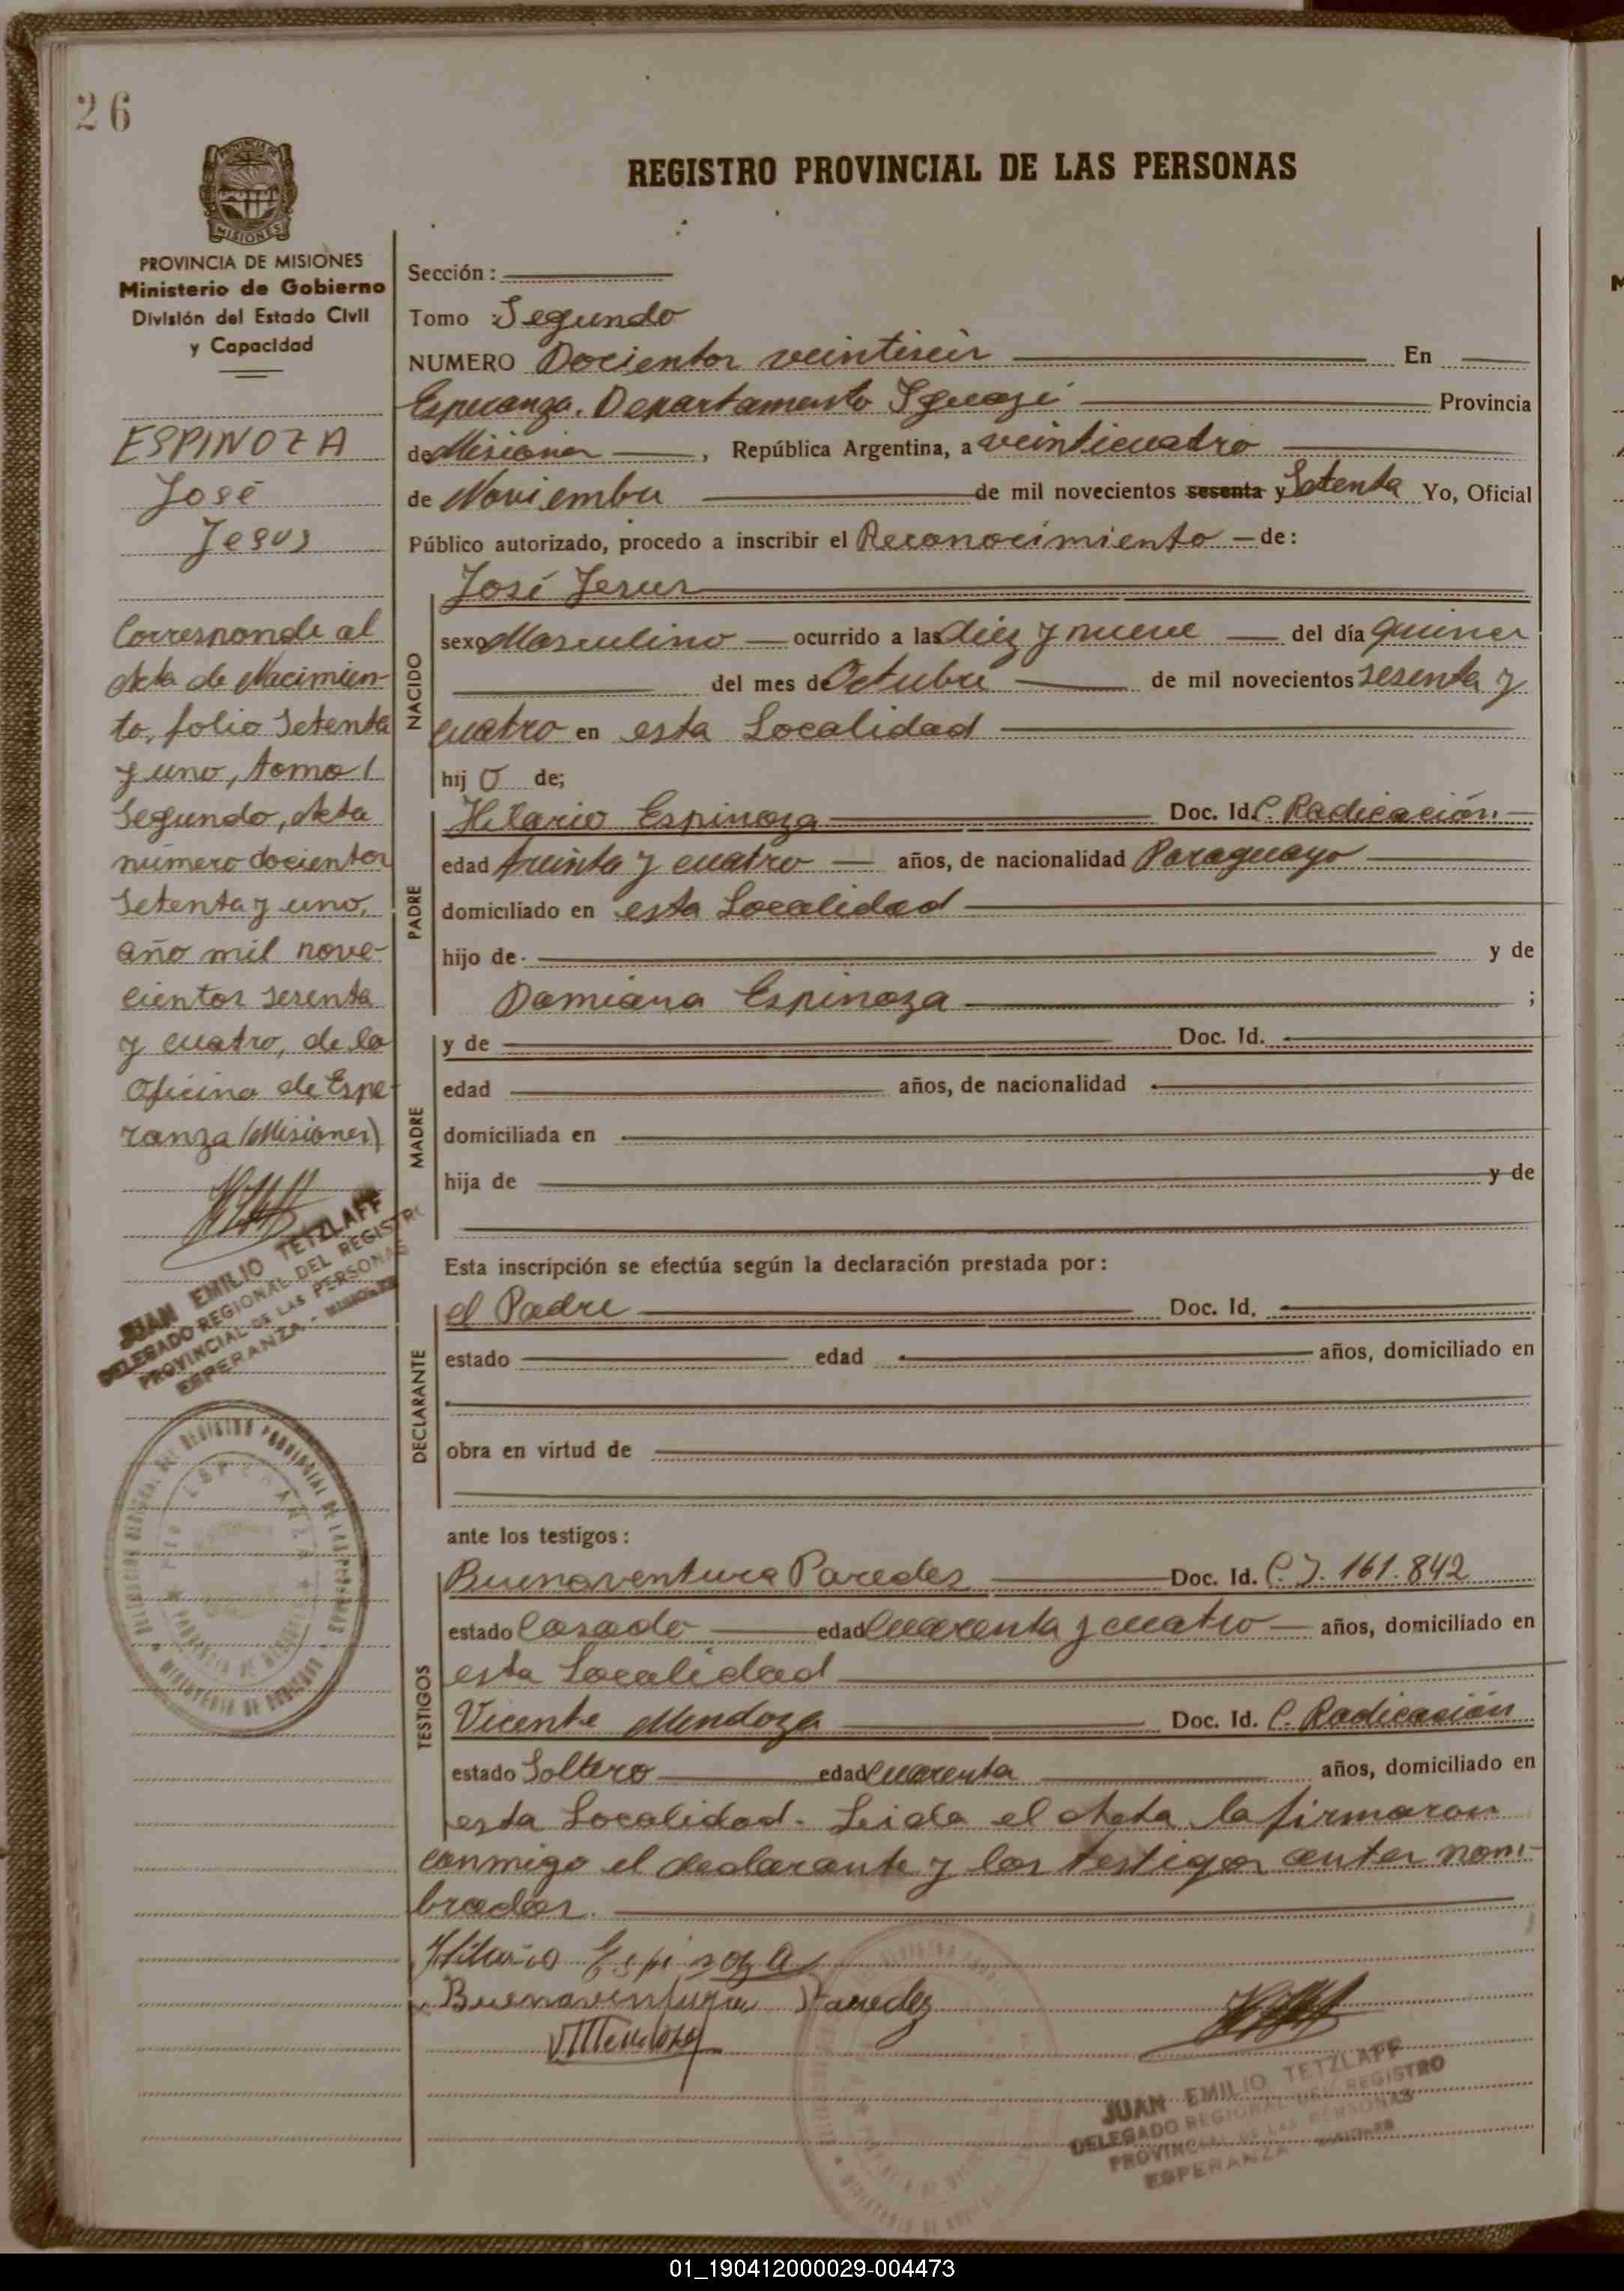 26
PROVINCIA DE MISIONES
REGISTRO PROVINCIAL DE LAS PERSONAS
PROVINCIA DE MISIONES
Ministerio de Gobierno
División del Estado Civil
y Capacidad
ESPINOZA
José
Jesus
Corresponde al
Acta de Nacimien-
to, folio Setenta
y uno, tomo
Segundo, Acta
número docientos
Setenta y uno,
año mil nove-
cientos sesenta
y cuatro, de la
Oficina de Espe-
ranza (Misiones)
JUAN EMILIO TETZLAFF
DELEGADO REGIONAL DEL REGISTRO
PROVINCIAL DE LAS PERSONAS
ESPERANZA - MISIONES
Sección:
Tomo Segundo
NUMERO Docientos veintiseis En
Esperanza. Departamento Iguazú Provincia
de Misiones, República Argentina, a veinticuatro
de Noviembre de mil novecientos sesenta y Setenta Yo, Oficial
Público autorizado, procedo a inscribir el Reconocimiento de:
NACIDO
José Jesus
sexo Masculino ocurrido a las diez y nueve del día quince
del mes de Octubre de mil novecientos sesenta y
cuatro en esta Localidad
hij o de;
PADRE
Hilario Espinoza Doc. Id. C. Radicación.
edad treinta y cuatro años, de nacionalidad Paraguayo
domiciliado en esta Localidad
hijo de y de
Damiana Espinoza ;
MADRE
y de Doc. Id.
edad años, de nacionalidad
domiciliada en
hija de y de
Esta inscripción se efectúa según la declaración prestada por:
DECLARANTE
el Padre Doc. Id.
estado edad años, domiciliado en
obra en virtud de
ante los testigos:
TESTIGOS
Buenaventura Paredes Doc. Id. C. I. 161.842
estado Casado edad Cuarenta y cuatro años, domiciliado en
esta Localidad
Vicente Mendoza Doc. Id. C. Radicación
estado Soltero edad Cuarenta años, domiciliado en
esta Localidad. Leida el Acta la firmaron
conmigo el declarante y los testigos antes nom-
brados.
Hilario Espinoza
Buenaventura Paredez
VMendoza
JUAN EMILIO TETZLAFF
DELEGADO REGIONAL DEL REGISTRO
PROVINCIAL DE LAS PERSONAS
ESPERANZA - MISIONES
01_190412000029-004473